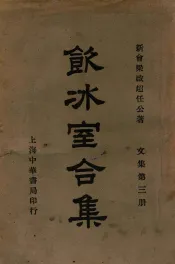 新會梁啟超任公著
飲冰室合集
文集第三册
上海中華書局印行